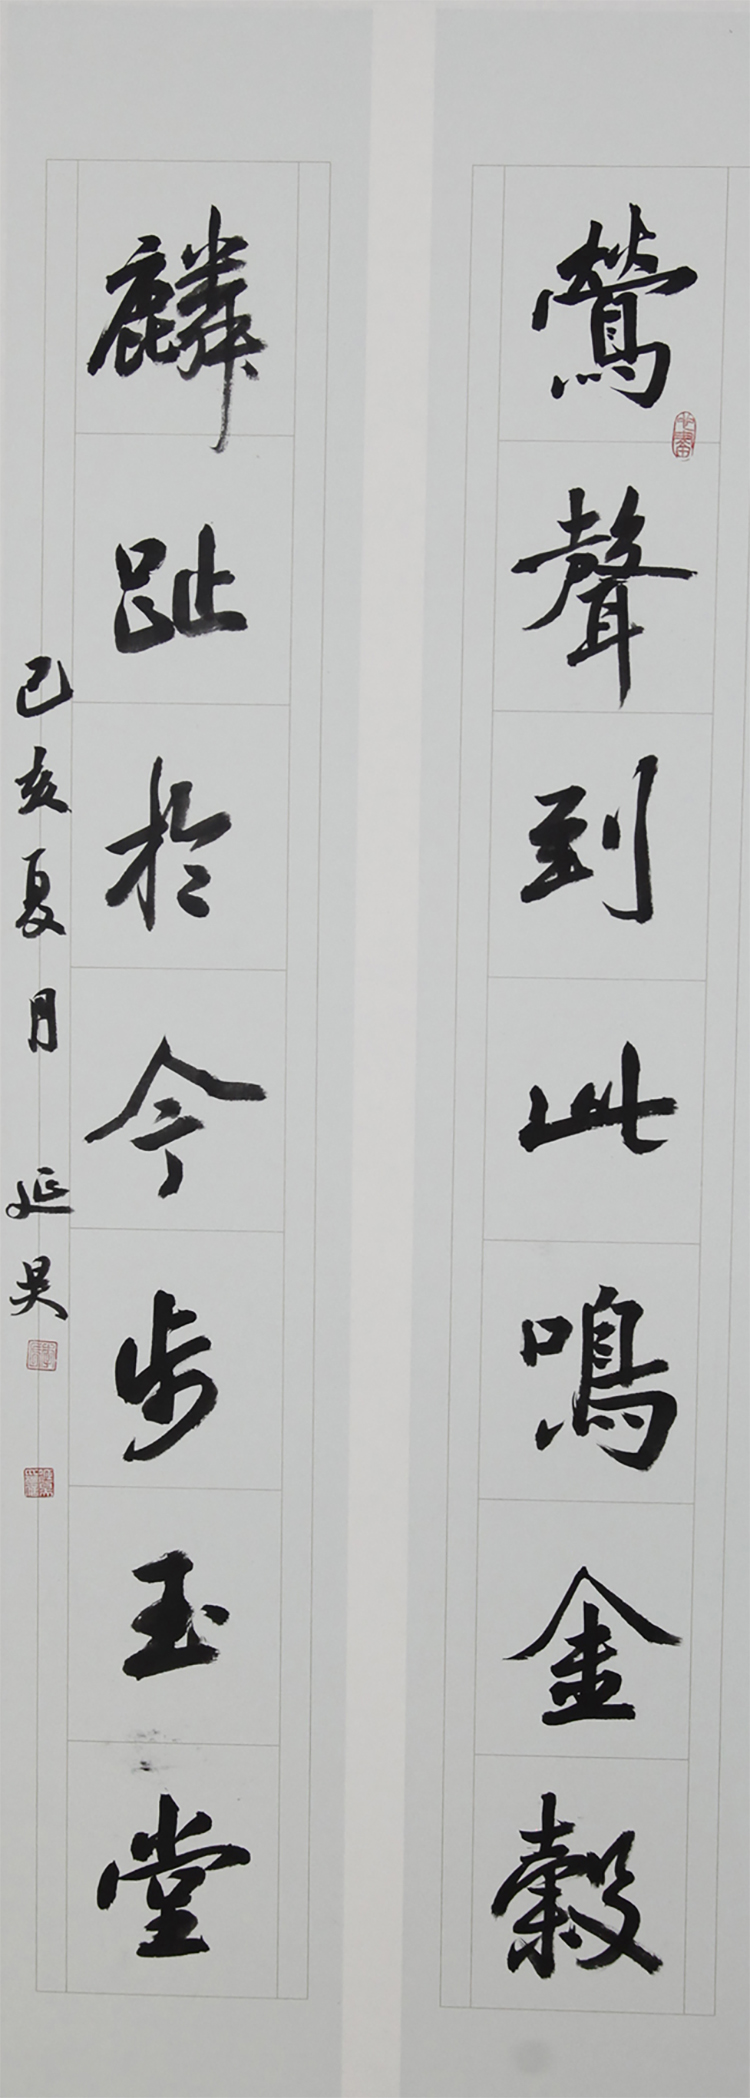 鶯聲到此鳴金榖
麟趾於今步玉堂
己亥夏月 延昊